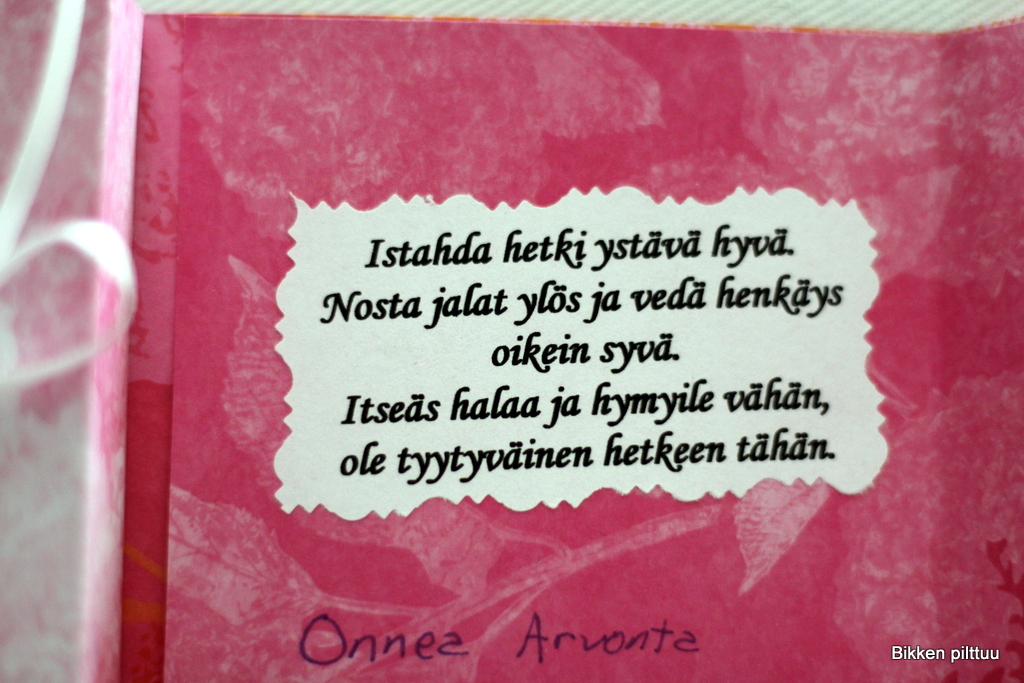 Istahda hetki ystävä hyvä.
Nosta jalat ylös ja vedä henkäys
oikein syvä.
Itseäs halaa ja hymyile vähän,
ole tyytyväinen hetkeen tähän.
Onnea Arvonta
Bikken pilttuu